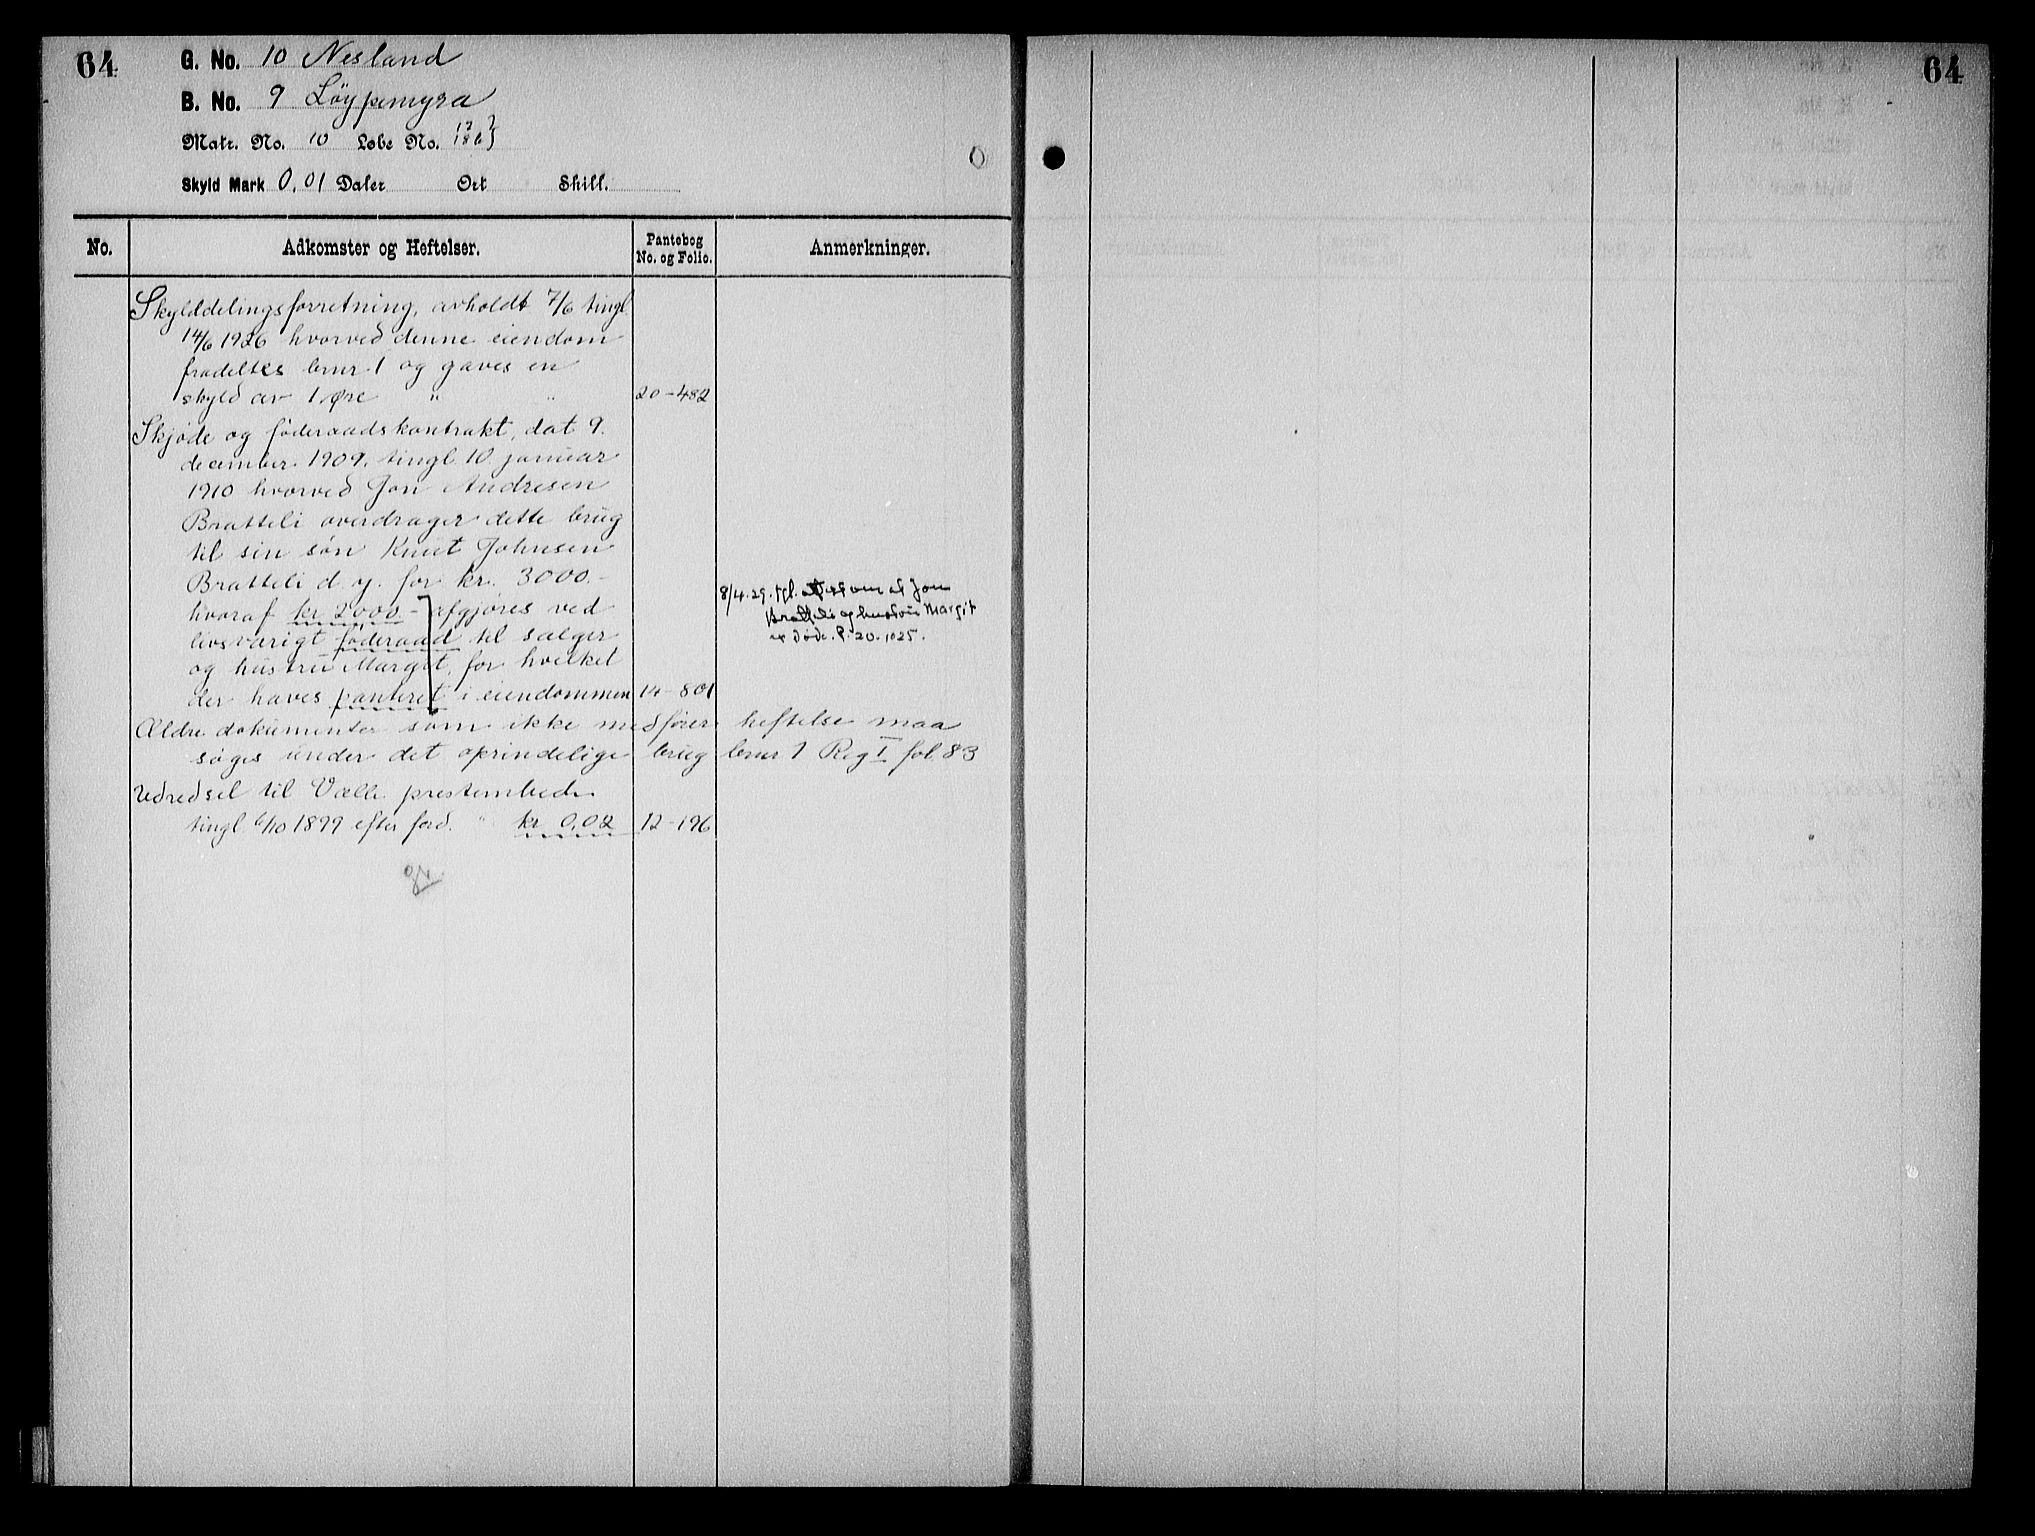 64
G. No. 10 Nesland
B. No. 9 Löypemyra
Matr. No. 10 Løbe No.
Skyld Mark 0,01 Daler Ort Skill.
No. Adkomster og Heftelser. Pantebog No. og Folio. Anmerkninger.
Skylddelingsforretning, avholdt 7/6 tingl.
14/6 1926 hvorved denne eiendom
fradeltes bnr 1 og gaves en
skyld av 1 Øre " " 20-482
Skjøde og föderaadskontrakt, dat 9.
december 1909. tingl. 10 januar
1910 hvorved Jon Andresen
Bratteli overdrager dette brug
til sin sön Knut Johnsen
Bratteli d. y. for kr. 3000.-
hvoraf kr 2000.- afgjøres ved
livsvarigt föderaad til sælger
og hustru Margit, for hvilket
der haves panteret i eiendommen 14-801
8/4.29. tgl. attest om at Jon
Bratteli og hustru Margit
er døde. P. 20. 1025.
Ældre dokumenter som ikke medfører heftelse maa
søges under det oprindelige brug bnr 1 Reg I fol. 83
Udredsel til Valle prestembede
tingl. 6/10 1899 efter ford. " kr 0,02 12-196
64